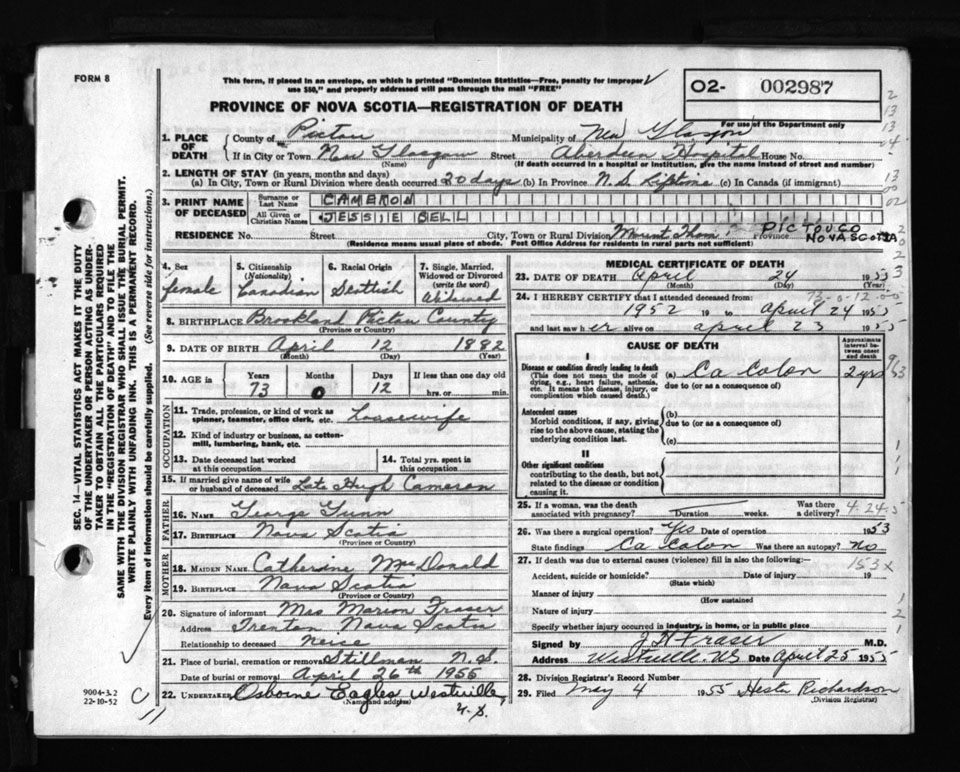 FORM 8
This form, if placed in an envelope, on which is printed "Dominion Statistics—Free, penalty for improper
use $50," and properly addressed will pass through the mail "FREE"
O2- 002987
For use of the Department only
PROVINCE OF NOVA SCOTIA—REGISTRATION OF DEATH
1. PLACE OF DEATH
County of Pictou Municipality of New Glasgow
If in City or Town New Glasgow Street Aberdeen Hospital House No.
(Name) (If death occurred in a hospital or institution, give the name instead of street and number)
2. LENGTH OF STAY (in years, months and days)
(a) In City, Town or Rural Division where death occurred 20 days (b) In Province N.S. Lifetime (c) In Canada (if immigrant)
3. PRINT NAME OF DECEASED
Surname or Last Name CAMERON
All Given or Christian Names JESSIE BELL
RESIDENCE No. Street City, Town or Rural Division Mount Thom Province PICTOU CO
NOVA SCOTIA
(Residence means usual place of abode. Post Office Address for residents in rural parts not sufficient)
4. Sex female
5. Citizenship (Nationality) Canadian
6. Racial Origin Scottish
7. Single, Married, Widowed or Divorced (write the word) Widowed
8. BIRTHPLACE Brookland Pictou County
(Province or Country)
9. DATE OF BIRTH April 12 1882
(Month) (Day) (Year)
10. AGE in Years 73 Months 0 Days 12 If less than one day old hrs. or min.
OCCUPATION
11. Trade, profession, or kind of work as spinner, teamster, office clerk, etc. Housewife
12. Kind of industry or business, as cotton-mill, lumbering, bank, etc.
13. Date deceased last worked at this occupation
14. Total yrs. spent in this occupation
15. If married give name of wife or husband of deceased Late Hugh Cameron
FATHER
16. NAME George Gunn
17. BIRTHPLACE Nova Scotia
(Province or Country)
MOTHER
18. MAIDEN NAME Catherine MacDonald
19. BIRTHPLACE Nova Scotia
(Province or Country)
20. Signature of informant Mrs Marion Fraser
Address Trenton Nova Scotia
Relationship to deceased Neice
21. Place of burial, cremation or removal Stillman N.S.
Date of burial or removal April 26th 1955
22. UNDERTAKER Osborne Eagles Westville
(Name and address)
N.S.
MEDICAL CERTIFICATE OF DEATH
23. DATE OF DEATH April 24 1955
(Month) (Day) (Year)
24. I HEREBY CERTIFY that I attended deceased from
1952 19 to April 24 1955
and last saw her alive on april 23 1955
CAUSE OF DEATH
Approximate interval between onset and death
I
Disease or condition directly leading to death
(This does not mean the mode of dying, e.g., heart failure, asthenia, etc. It means the disease, injury, or complication which caused death.)
(a) Ca Colon 2 yrs
due to (or as a consequence of)
Antecedent causes
Morbid conditions, if any, giving rise to the above cause, stating the underlying condition last.
(b)
due to (or as a consequence of)
(c)
II
Other significant conditions
contributing to the death, but not related to the disease or condition causing it.
25. If a woman, was the death associated with pregnancy? Duration weeks. Was there a delivery?
26. Was there a surgical operation? Yes Date of operation 1953
State findings Ca Colon Was there an autopsy? no
153x
27. If death was due to external causes (violence) fill in also the following:
Accident, suicide or homicide? Date of injury 19
(State which)
Manner of injury
(How sustained
Nature of injury
Specify whether injury occurred in industry, in home, or in public place
Signed by Fraser M.D.
Address Westville. NS Date April 25 1955
28. Division Registrar's Record Number
29. Filed May 4 1955 Hester Richardson
(Division Registrar)
SEC. 14—VITAL STATISTICS ACT MAKES IT THE DUTY
OF THE UNDERTAKER OR PERSON ACTING AS UNDER-
TAKER TO OBTAIN ALL THE PARTICULARS REQUIRED
IN THE "REGISTRATION OF DEATH" AND TO FILE THE
SAME WITH THE DIVISION REGISTRAR WHO SHALL ISSUE THE BURIAL PERMIT.
WRITE PLAINLY WITH UNFADING INK. THIS IS A PERMANENT RECORD.
Every item of information should be carefully supplied. (See reverse side for instructions).
9004-3.2
22-10-52